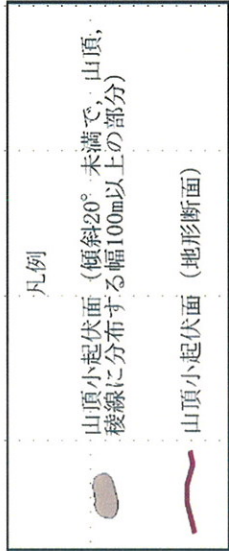 凡例
山頂小起伏面（傾斜20°未満で，山頂，
稜線に分布する幅100m以上の部分）
山頂小起伏面（地形断面）